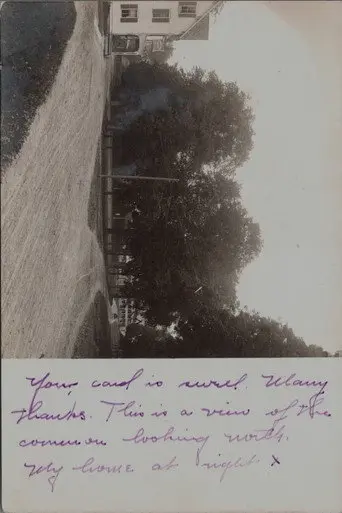 Your card is swell. Many
thanks. This is a view of the
common looking north.
My home at right x